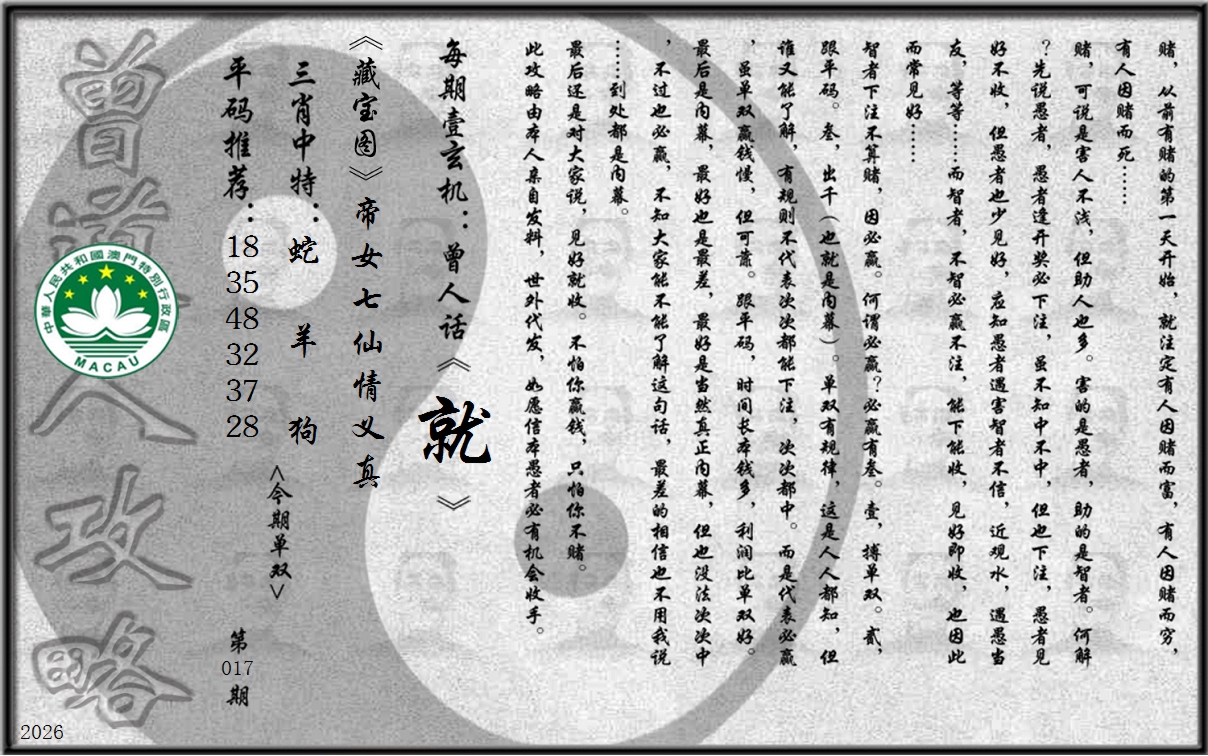 赌，从前有赌的第一天开始，就注定有人因赌而富，有人因赌而穷，
有人因赌而死……
赌，可说是害人不浅，但助人也多。害的是愚者，助的是智者。何解
？先说愚者，愚者逢开奖必下注，虽不知中不中，但也下注，愚者见
好不收，但愚者也少见好，应知愚者遇害智者不信，近观水，遇愚当
友，等等……而智者，不智必赢不注，能下能收，见好即收，也因此
而常见好……
智者下注不算赌，因必赢。何谓必赢？必赢有叁。壹，搏单双。贰，
跟平码。叁，出千（也就是内幕）。单双有规律，这是人人都知，但
谁又能了解，有规则不代表次次都能下注，次次都中。而是代表必赢
，虽单双赢钱慢，但可靠。跟平码，时间长本钱多，利润比单双好。
最后是内幕，最好也是最差，最好是当然真正内幕，但也没法次次中
，不过也必赢，不知大家能不能了解这句话，最差的相信也不用我说
……到处都是内幕。
最后还是对大家说，见好就收。不怕你赢钱，只怕你不赌。
此攻略由本人亲自发料，世外代发，如愿信本愚者必有机会收手。
每期壹玄机：曾人话《就》
《藏宝图》帝女七仙情义真
三肖中特：蛇 羊 狗
<今期单双>
平码推荐：
18
35
48
32
37
28
第
017
期
曾道人攻略
中華人民共和國澳門特別行政區
MACAU
2026